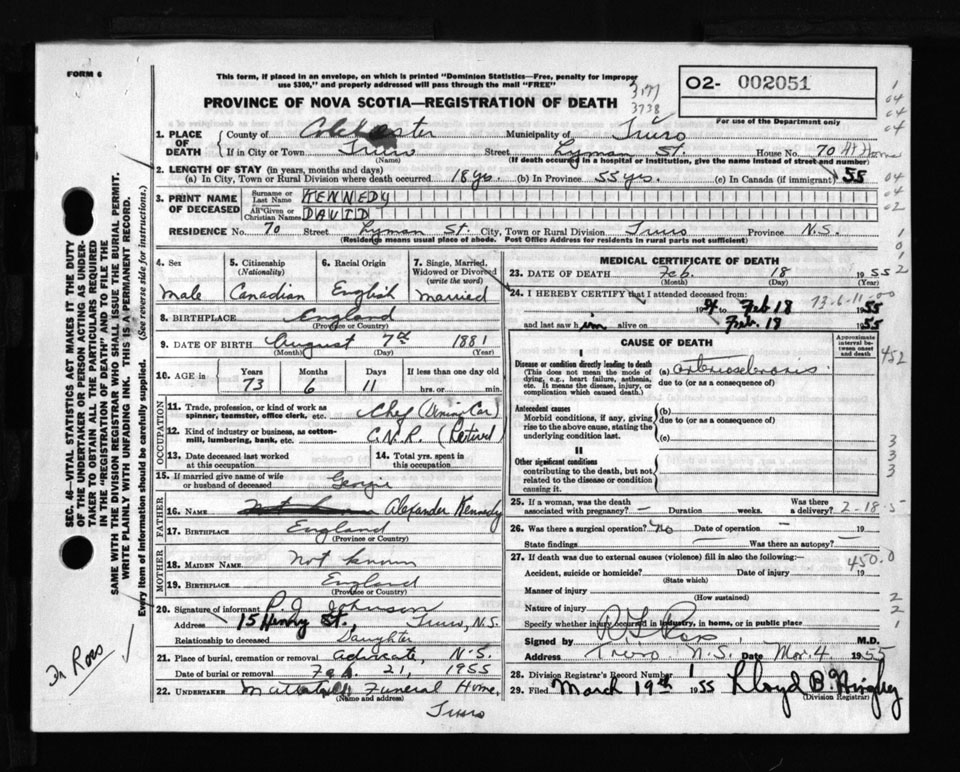 FORM 6
This form, if placed in an envelope, on which is printed "Dominion Statistics—Free, penalty for improper
use $300," and properly addressed will pass through the mail "FREE"
3177
3738
O2- 002051
For use of the Department only
PROVINCE OF NOVA SCOTIA—REGISTRATION OF DEATH
1. PLACE OF DEATH
County of Colchester Municipality of Truro
If in City or Town Truro Street Lyman St. House No. 70 At Home
(Name) (If death occurred in a hospital or institution, give the name instead of street and number)
2. LENGTH OF STAY (in years, months and days)
(a) In City, Town or Rural Division where death occurred 18 yrs. (b) In Province 55 yrs. (c) In Canada (if immigrant) 55
3. PRINT NAME OF DECEASED
Surname or Last Name KENNEDY
All Given or Christian Names DAVID
RESIDENCE No. 70 Street Lyman St. City, Town or Rural Division Truro Province N.S.
(Residence means usual place of abode. Post Office Address for residents in rural parts not sufficient)
4. Sex
Male
5. Citizenship (Nationality)
Canadian
6. Racial Origin
English
7. Single, Married, Widowed or Divorced (write the word)
Married
8. BIRTHPLACE England
(Province or Country)
9. DATE OF BIRTH August 7th 1881
(Month) (Day) (Year)
10. AGE
Years 73
Months 6
Days 11
If less than one day old
hrs. or min.
OCCUPATION
11. Trade, profession, or kind of work as spinner, teamster, office clerk, etc. Chef (Dining Car)
12. Kind of industry or business, as cotton-mill, lumbering, bank, etc. C.N.R. (Retired)
13. Date deceased last worked at this occupation
14. Total yrs. spent in this occupation
15. If married give name of wife or husband of deceased Georgie
FATHER
16. NAME Alexander Kennedy
17. BIRTHPLACE England
(Province or Country)
MOTHER
18. MAIDEN NAME Not known
19. BIRTHPLACE England
(Province or Country)
20. Signature of informant P.J. Johnson
Address 15 Henry St. Truro, N.S.
Relationship to deceased Daughter
21. Place of burial, cremation or removal Advocate, N.S.
Date of burial or removal Feb. 21, 1955
22. UNDERTAKER Mattatall Funeral Home,
(Name and address)
Truro
MEDICAL CERTIFICATE OF DEATH
23. DATE OF DEATH Feb. 18 1955
(Month) (Day) (Year)
24. I HEREBY CERTIFY that I attended deceased from:
1954 to Feb 18 1955
73-6-11-00
and last saw him alive on Feb. 18 1955
CAUSE OF DEATH
Approximate interval between onset and death
452
I
Disease or condition directly leading to death
(This does not mean the mode of dying, e.g., heart failure, asthenia, etc. It means the disease, injury, or complication which caused death.)
(a) arteriosclerosis
due to (or as a consequence of)
Antecedent causes
Morbid conditions, if any, giving rise to the above cause, stating the underlying condition last.
(b)
due to (or as a consequence of)
(c)
II
Other significant conditions
contributing to the death, but not related to the disease or condition causing it.
25. If a woman, was the death associated with pregnancy? — Duration weeks. Was there a delivery?
2-18-5
26. Was there a surgical operation? No Date of operation —
State findings Was there an autopsy? —
27. If death was due to external causes (violence) fill in also the following:—
450.0
Accident, suicide or homicide? Date of injury
(State which)
Manner of injury
(How sustained)
Nature of injury
Specify whether injury occurred in industry, in home, or in public place
Signed by M.D.
Address Truro N.S. Date Mar. 4 1955
28. Division Registrar's Record Number
29. Filed March 19th 1955
(Division Registrar)
SEC. 46—VITAL STATISTICS ACT MAKES IT THE DUTY
OF THE UNDERTAKER OR PERSON ACTING AS UNDER-
TAKER TO OBTAIN ALL THE PARTICULARS REQUIRED
IN THE "REGISTRATION OF DEATH" AND TO FILE THE
SAME WITH THE DIVISION REGISTRAR WHO SHALL ISSUE THE BURIAL PERMIT.
WRITE PLAINLY WITH UNFADING INK. THIS IS A PERMANENT RECORD.
Every item of information should be carefully supplied. (See reverse side for instructions.)
Dr Ross